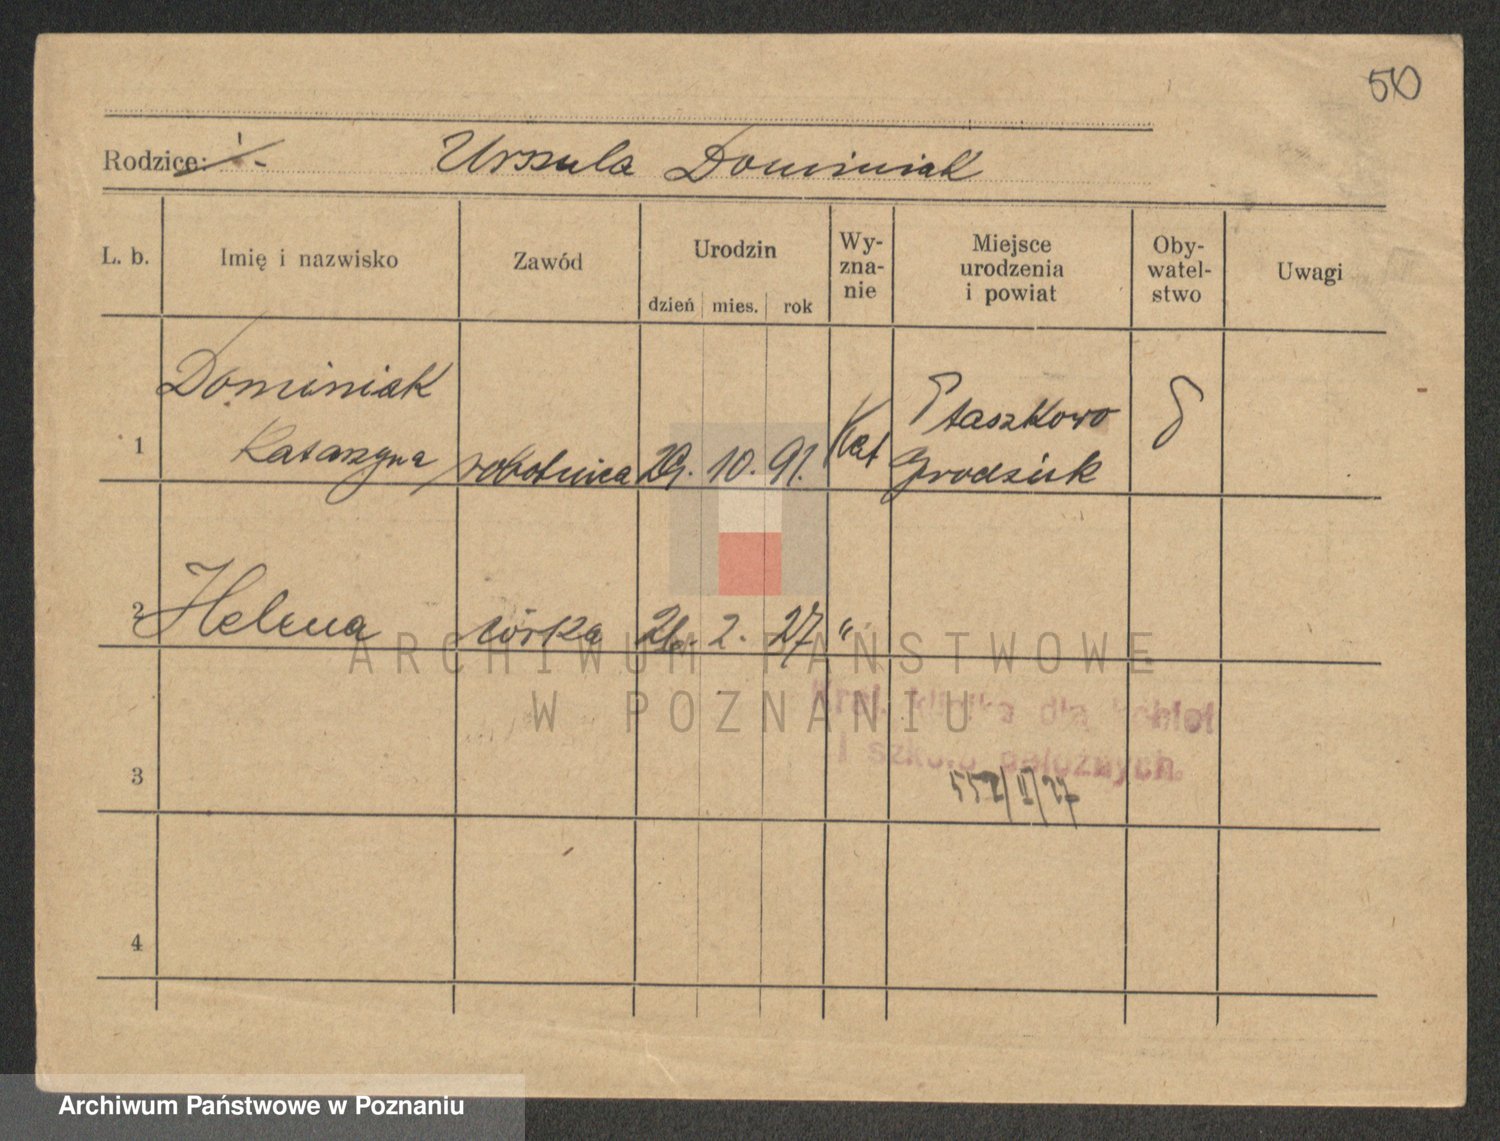 50
Rodzice: Urszula Dominiak
L. b. Imię i nazwisko Zawód Urodzin Wy-zna-nie Miejsce urodzenia i powiat Oby-watel-stwo Uwagi
dzień mies. rok
Dominiak
1 Katarzyna robotnica 29. 10. 91. Kat Ptaszkowo
Grodzisk
2 Helena córka 26. 2. 27 "
ARCHIWUM PAŃSTWOWE
W POZNANIU
Kraj. klinika dla kobiet
i szkoła położnych.
3
4
Archiwum Państwowe w Poznaniu